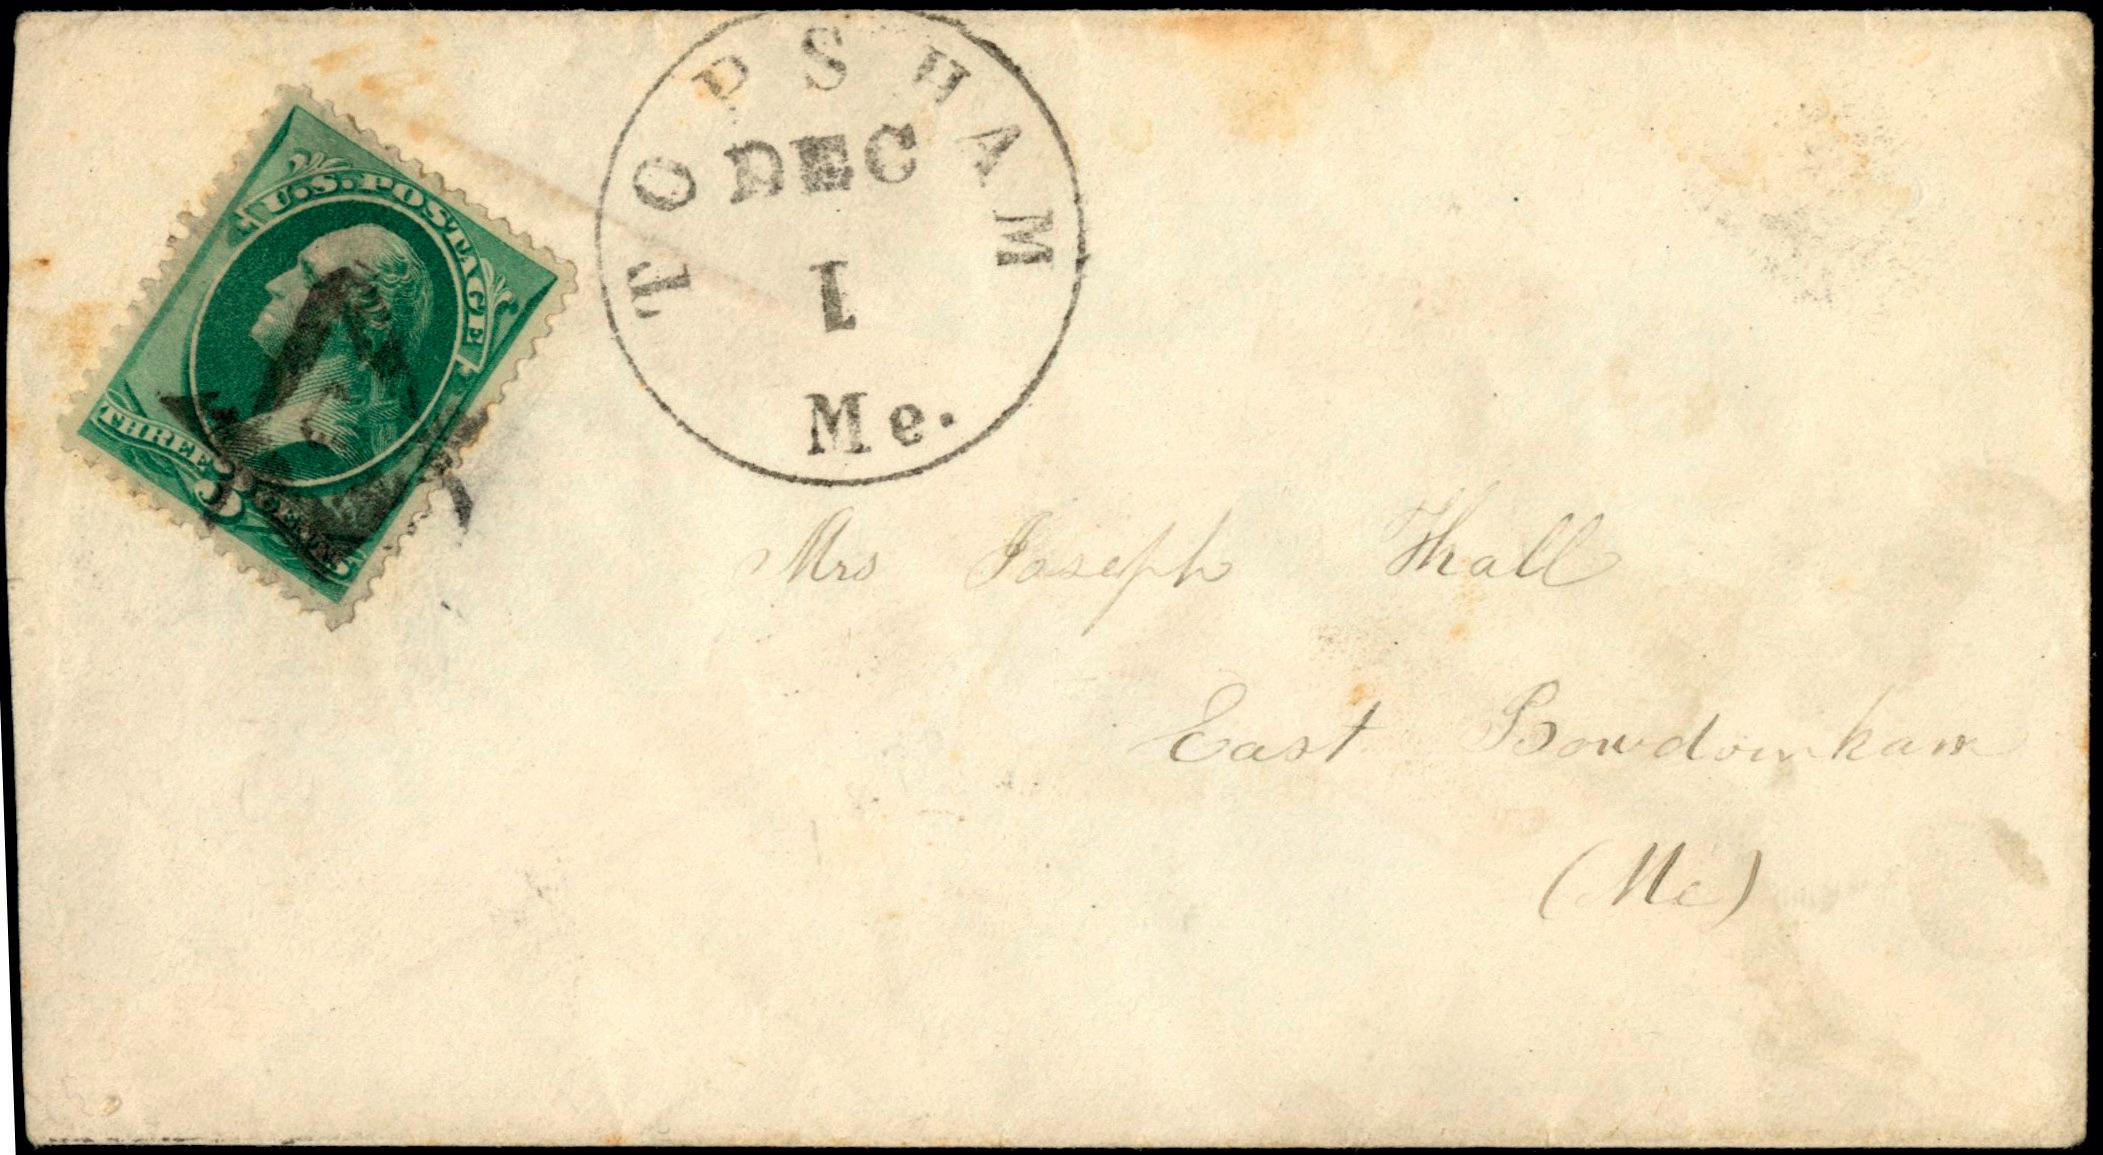 U.S. POSTAGE
THREE 3 CENTS
TOPSHAM
DEC
1
Me.
Mrs Joseph Thall
East Bowdoinham
(Me)